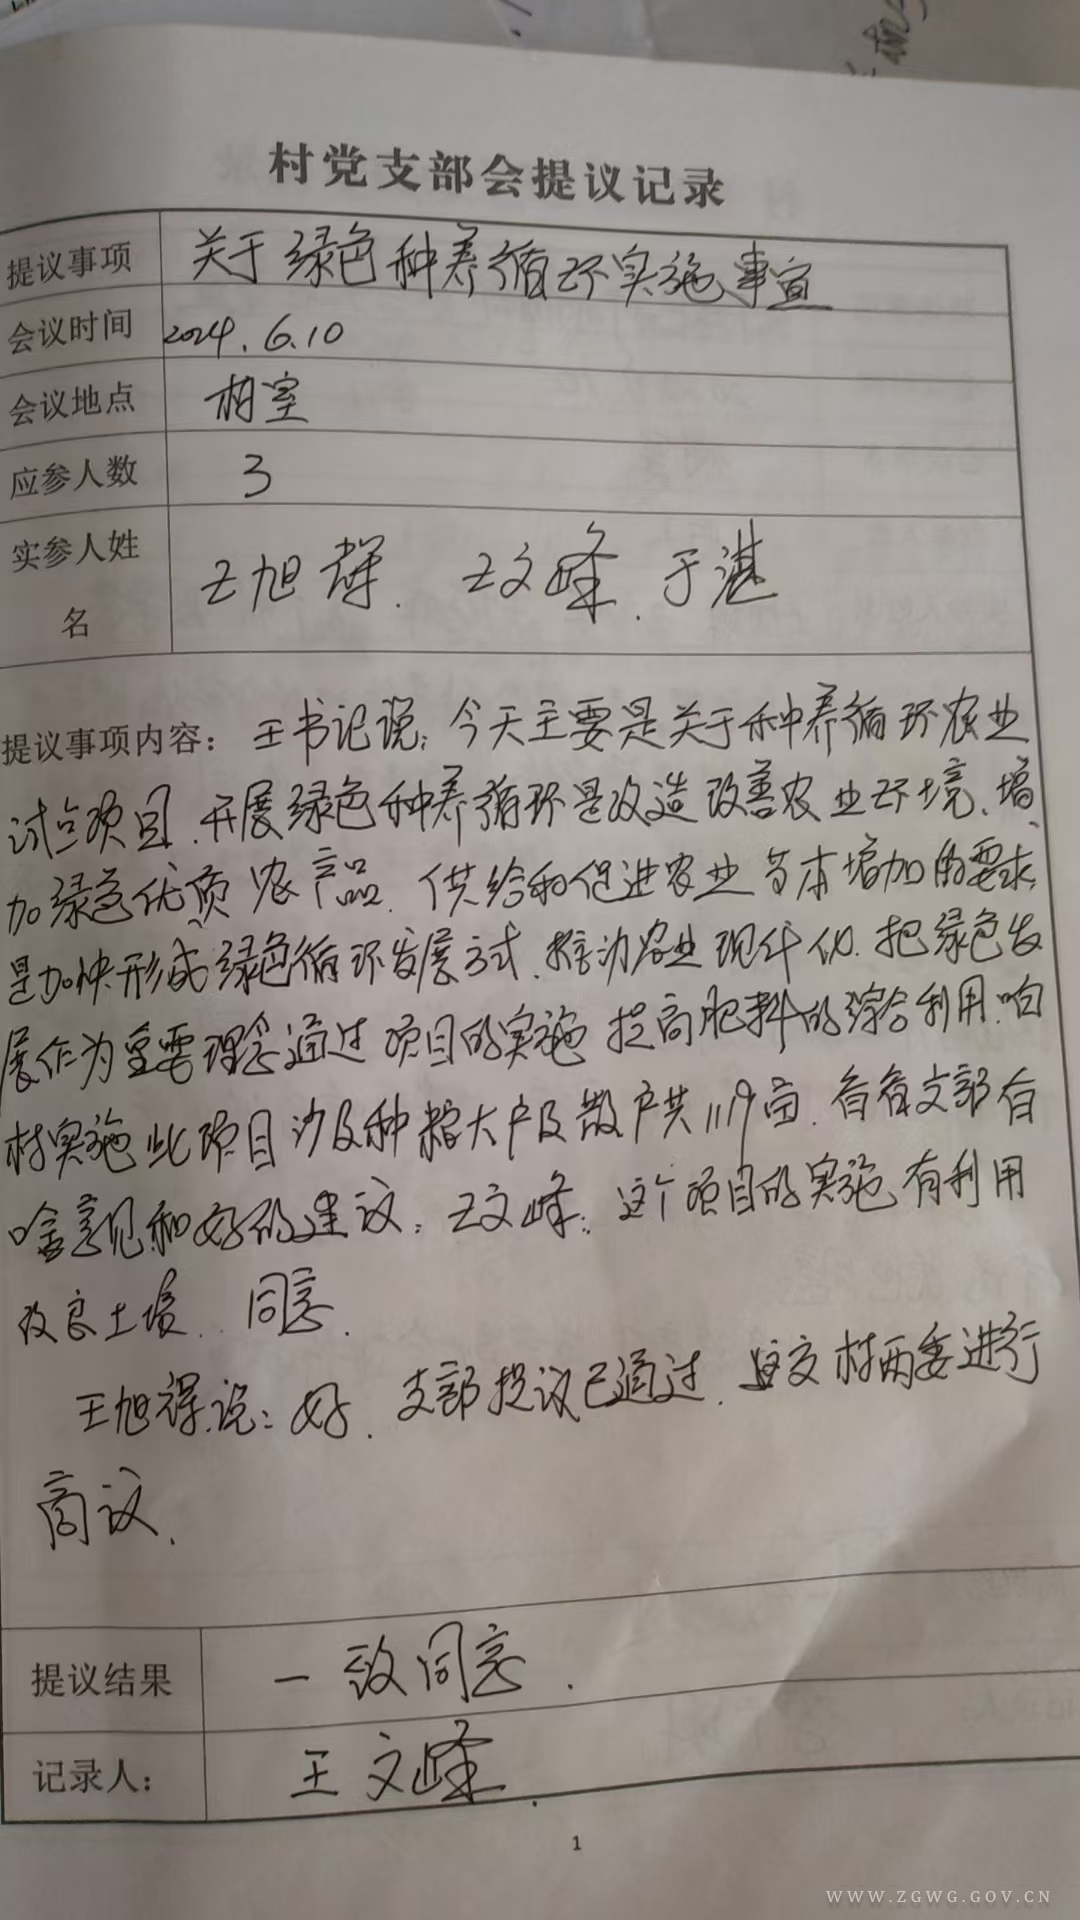 村党支部会提议记录
提议事项 关于绿色种养循环实施事宜
会议时间 2024.6.10
会议地点 村室
应参人数 3
实参人姓名 王旭 王文峰 于湛
提议事项内容: 王书记说: 今天主要是关于种养循环农业
试点项目.开展绿色种养循环是改造改善农业环境、增
加绿色优质农产品.供给和促进农业 本增加的要求,
是加快形成绿色循环发展方式.推动农业现代化.把绿色发
展作为重要理念通过项目的实施提高肥料的综合利用.咱
村实施此项目涉及种粮大户及散户共1119亩.看看支部有
啥意见和好的建议: 王文峰: 这个项目的实施有利用
改良土壤. 同意.
王旭 说: 好. 支部提议已通过. 交村两委进行
商议.
提议结果 一致同意.
记录人: 王文峰.
1
WWW.ZGWG.GOV.CN